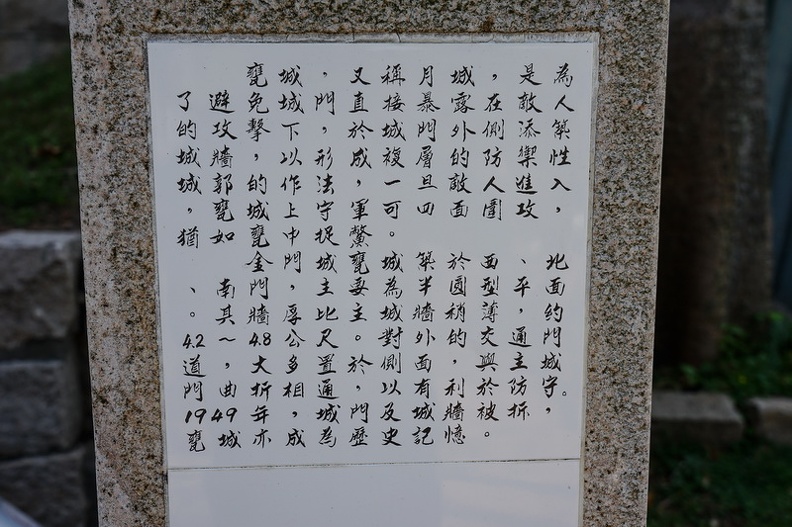 為人築性入,北面約門城守。,
是敵添禦進攻、平,通主防拆
,在側防人圍西型薄交與於被。
城露外的敵面於圓稍的,利牆憶
月暴門層旦四築半牆外面有城記
稱接城複一可。城為城對側以及史
又直於成,軍鱉甕妥主。於,門歷
,門,形法守捉城主比尺置通城為
城城下以作上中門,厚公多相,成
甕免擊,的城甕金門牆4.8大折年亦
避攻牆郭甕如南其~,曲49城
了的城城,猶、。4.2道門19甕